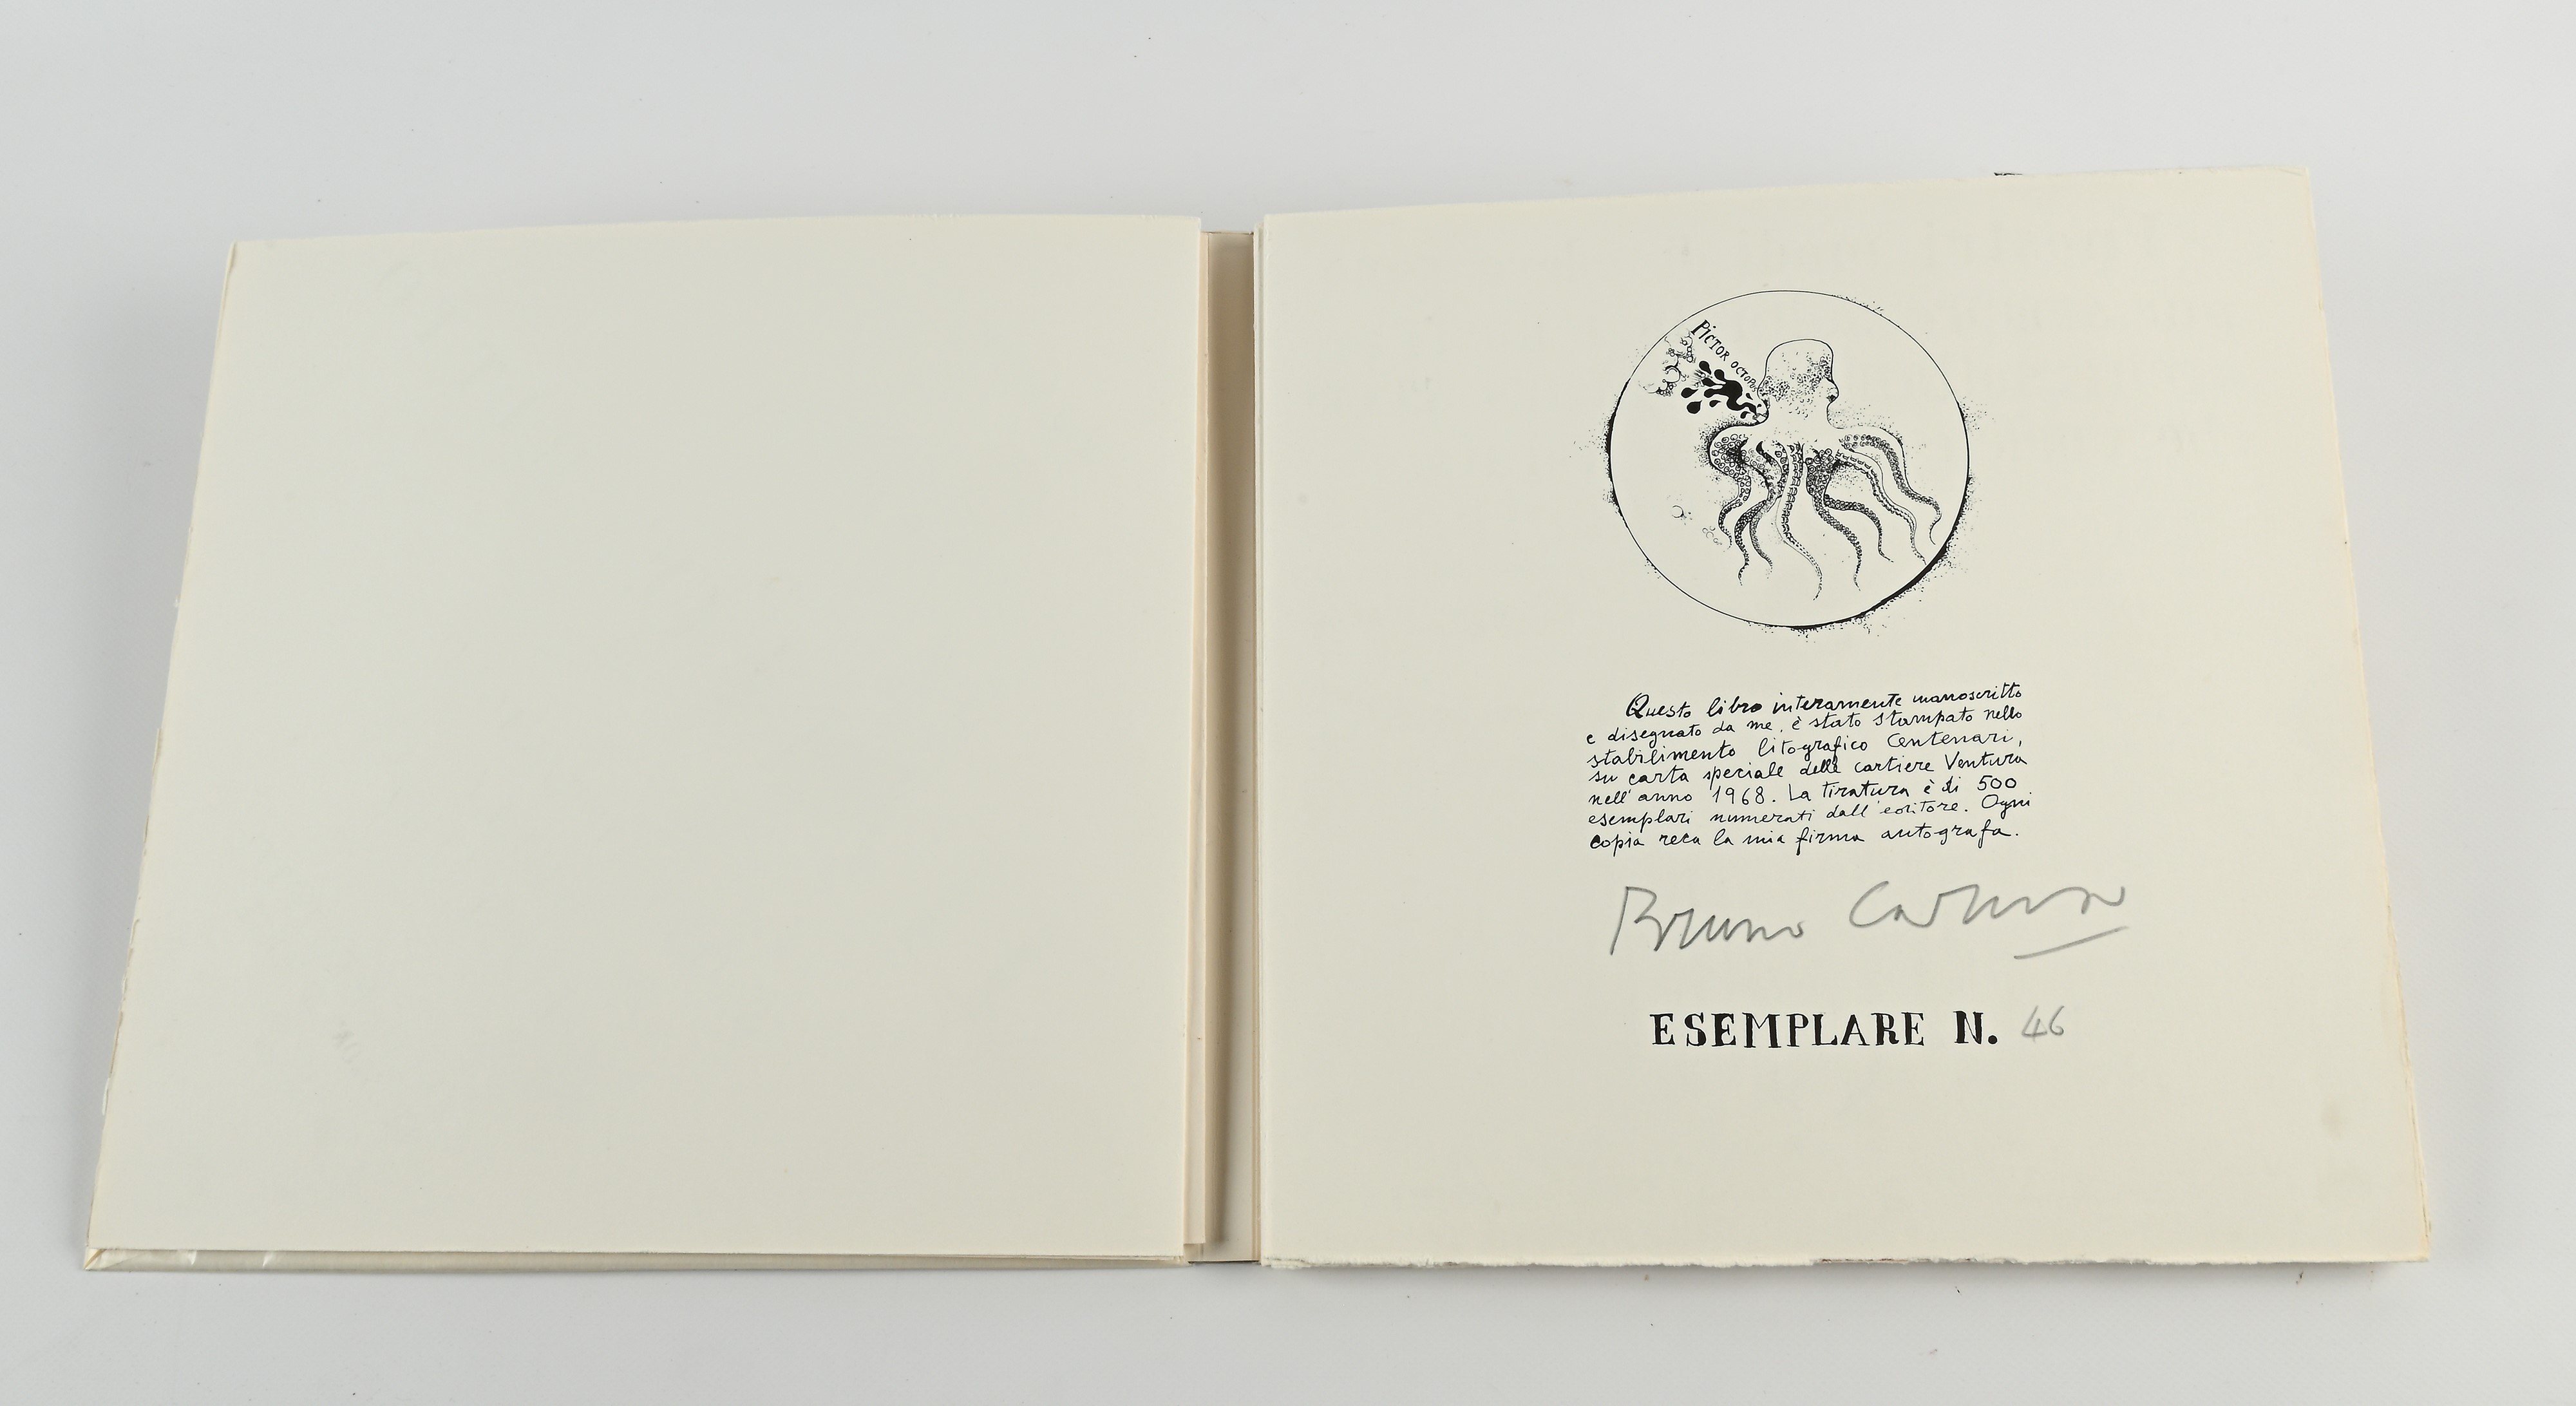 PICTOR OCTOPUS
Questo libro interamente manoscritto
e disegnato da me, è stato stampato nello
stabilimento litografico Centenari,
su carta speciale delle cartiere Ventura
nell'anno 1968. La tiratura è di 500
esemplari numerati dall'editore. Ogni
copia reca la mia firma autografa.
Bruno Caruso
ESEMPLARE N. 46